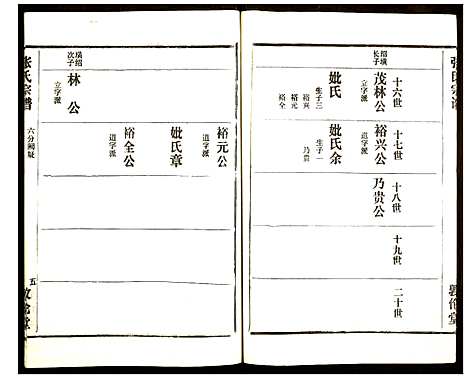 张氏宗谱
十六世
十七世
十八世
十九世
二十世
绍璜
长子
茂林公
立字派
妣氏
生子三
裕兴
裕元
裕全
裕兴公
道字派
妣氏余
生子一
乃贵
乃贵公
敦伦堂
绍
次子
林公
立字派
裕元公
道字派
妣氏章
裕全公
道字派
张氏宗谱
六分祠址
五
敦伦堂